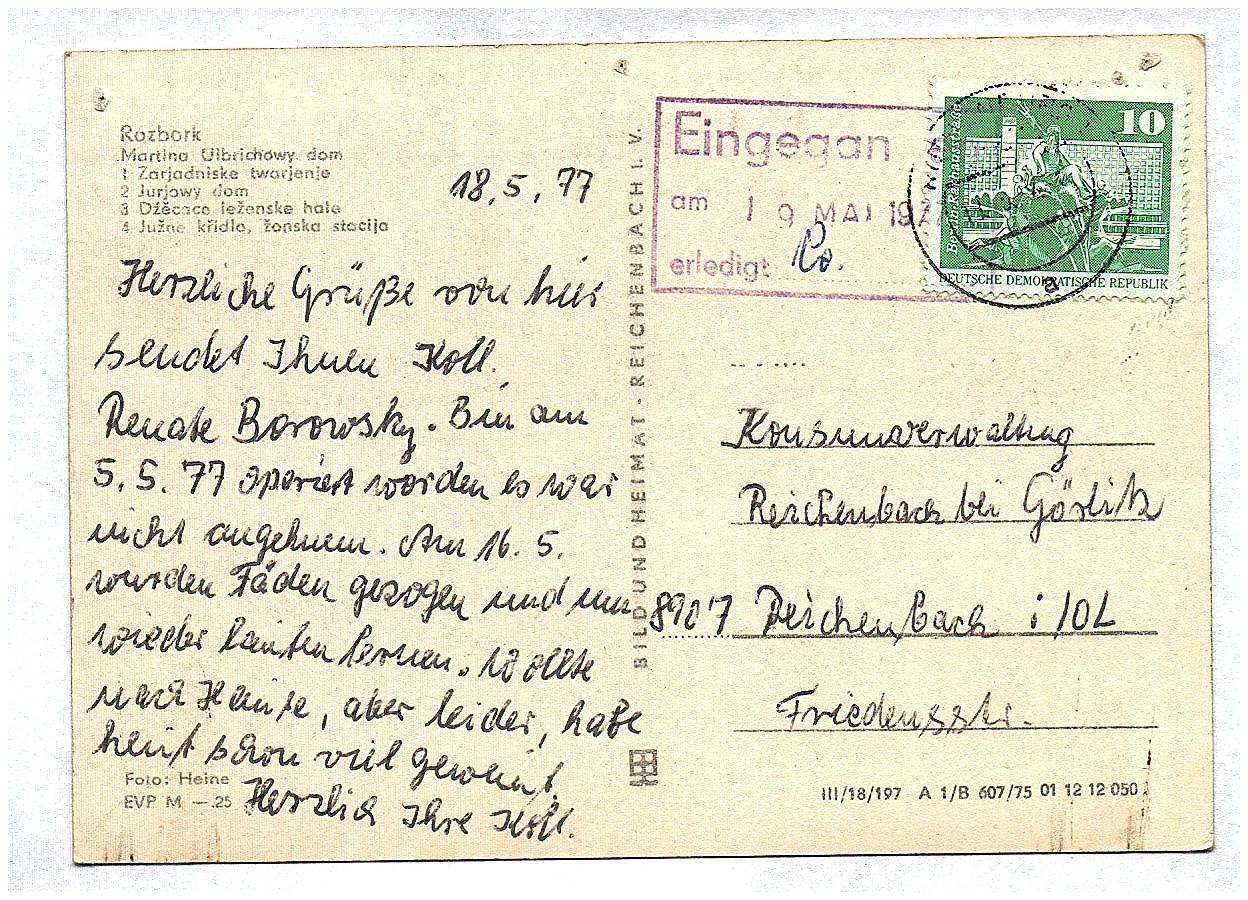 Rózbork
Martina Ulbrichowy dom
1 Zarjadniske twarjenje
2 Jurjowy dom
3 Džěcace leženske hale
4 Južne křidło, žonska stacija
18.5.77
Herzliche Grüße von hier
sendet Ihnen Koll.
Renate Borowsky. Bin am
5.5.77 operiert worden es war
nicht angenehm. Am 16.5.
wurden Fäden gezogen und nun
wieder laufen lernen. Wollte
nach Hause, aber leider, habe
heut schon viel geweint.
Herzlich Ihre Koll.
Foto: Heine
EVP M —.25
BILD UND HEIMAT · REICHENBACH I. V.
Eingegan
am 19 MAI 197
erledigt
10
DEUTSCHE DEMOKRATISCHE REPUBLIK
Konsumverwaltung
Reichenbach bei Görlitz
8907 Reichenbach i/OL
Friedensstr.
III/18/197 A 1/B 607/75 01 12 12 050